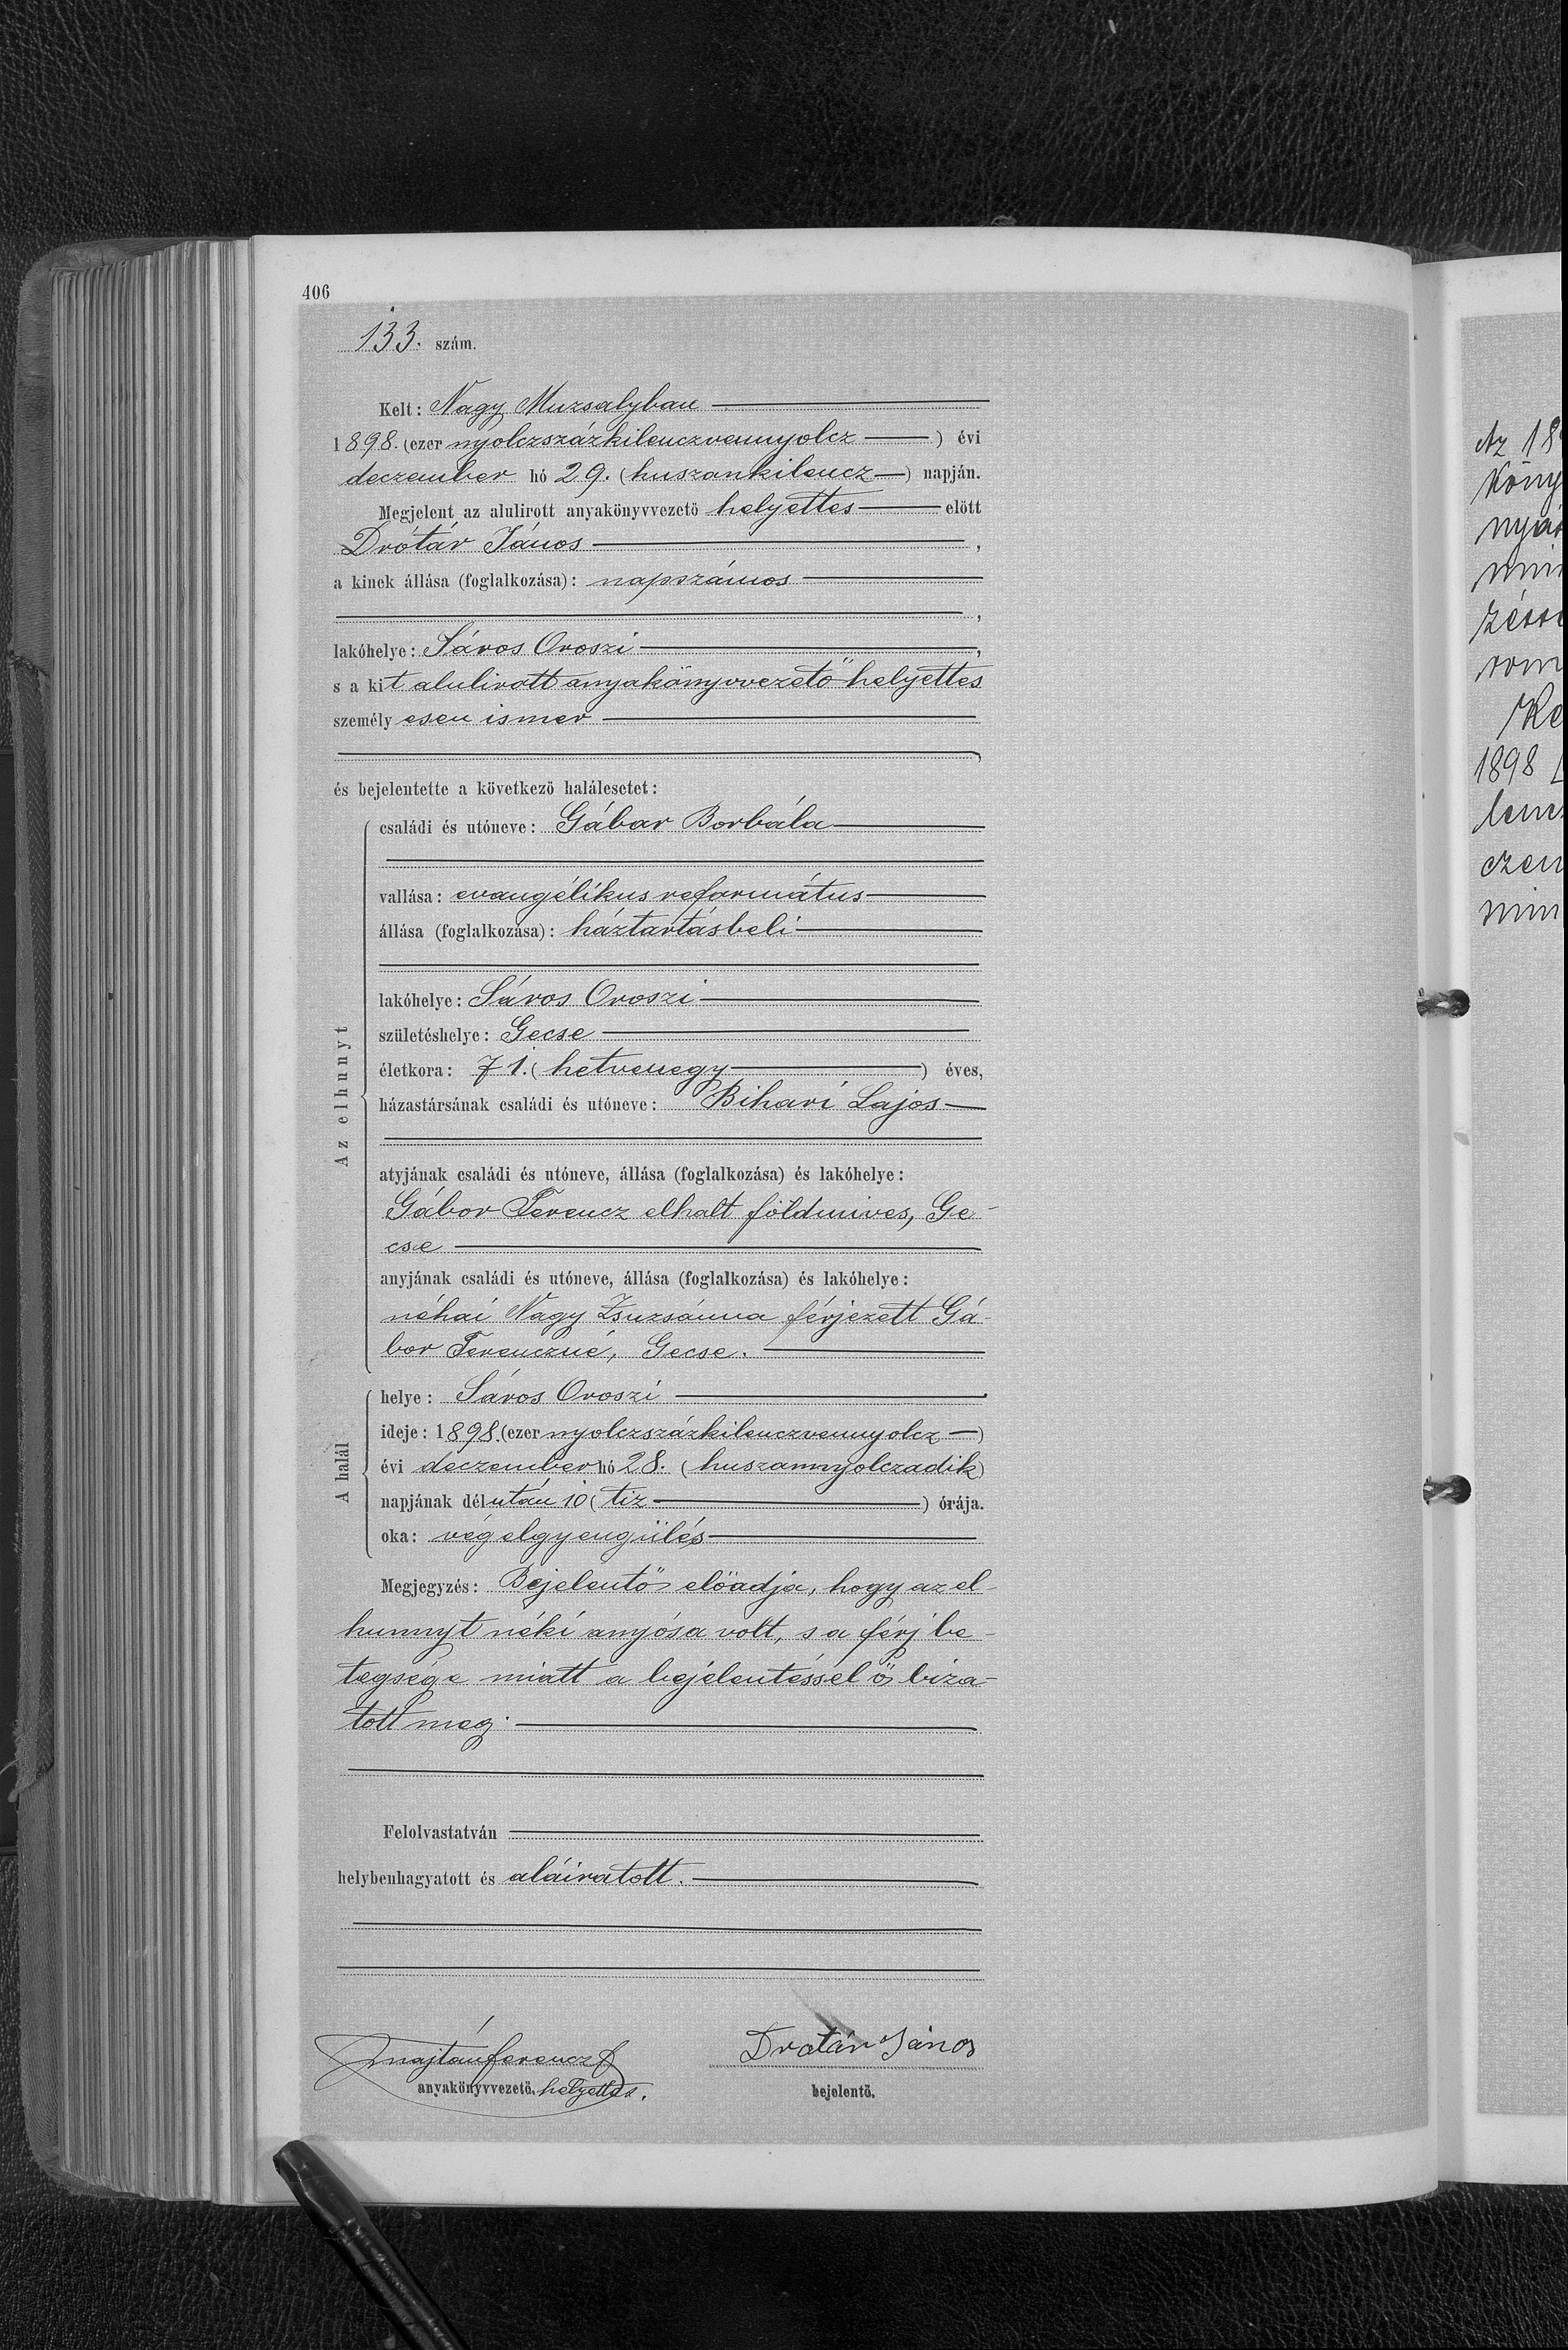 406
133. szám.
Kelt: Nagy Muzsalyban
1898. (ezer nyolczszázkilenczvennyolcz) évi
deczember hó 29. (huszonkilencz) napján.
Megjelent az alulirott anyakönyvvezető helyettes előtt
Drótár János,
a kinek állása (foglalkozása): napszámos
,
lakóhelye: Sáros Oroszi,
s a kit alulirott anyakönyvvezető helyettes
személyesen ismer
,
és bejelentette a következő halálesetet:
Az elhunyt
családi és utóneve: Gábar Borbála
vallása: evangélikus református
állása (foglalkozása): háztartásbeli
lakóhelye: Sáros Oroszi
születéshelye: Gecse
életkora: 71. (hetvenegy) éves,
házastársának családi és utóneve: Bihari Lajos
atyjának családi és utóneve, állása (foglalkozása) és lakóhelye:
Gábor Ferencz elhalt földmives, Ge-
cse
anyjának családi és utóneve, állása (foglalkozása) és lakóhelye:
néhai Nagy Zsuzsánna férjezett Gá-
bor Ferenczné, Gecse.
A halál
helye: Sáros Oroszi
ideje: 1898. (ezer nyolczszázkilenczvennyolcz)
évi deczember hó 28. (huszannyolczadik)
napjának délután 10 (tiz) órája.
oka: vég elgyengülés
Megjegyzés: Bejelentő előadja, hogy az el-
hunnyt néki anyósa volt, s a férj be-
tegsége miatt a bejelentéssel ő biza-
tott meg.
Felolvastatván
helybenhagyatott és aláiratott.
Majtán Ferencz Drotár János
anyakönyvvezető. helyettes. bejelentő.
Az 18
köny
nyá
1898
czem